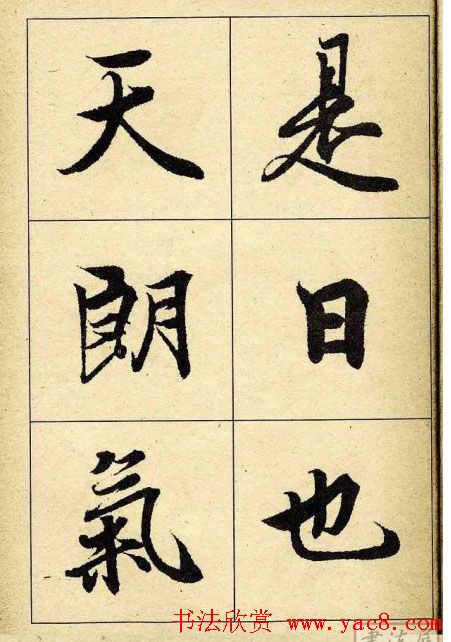 是日也
天朗氣
书法欣赏 www.yac8.com